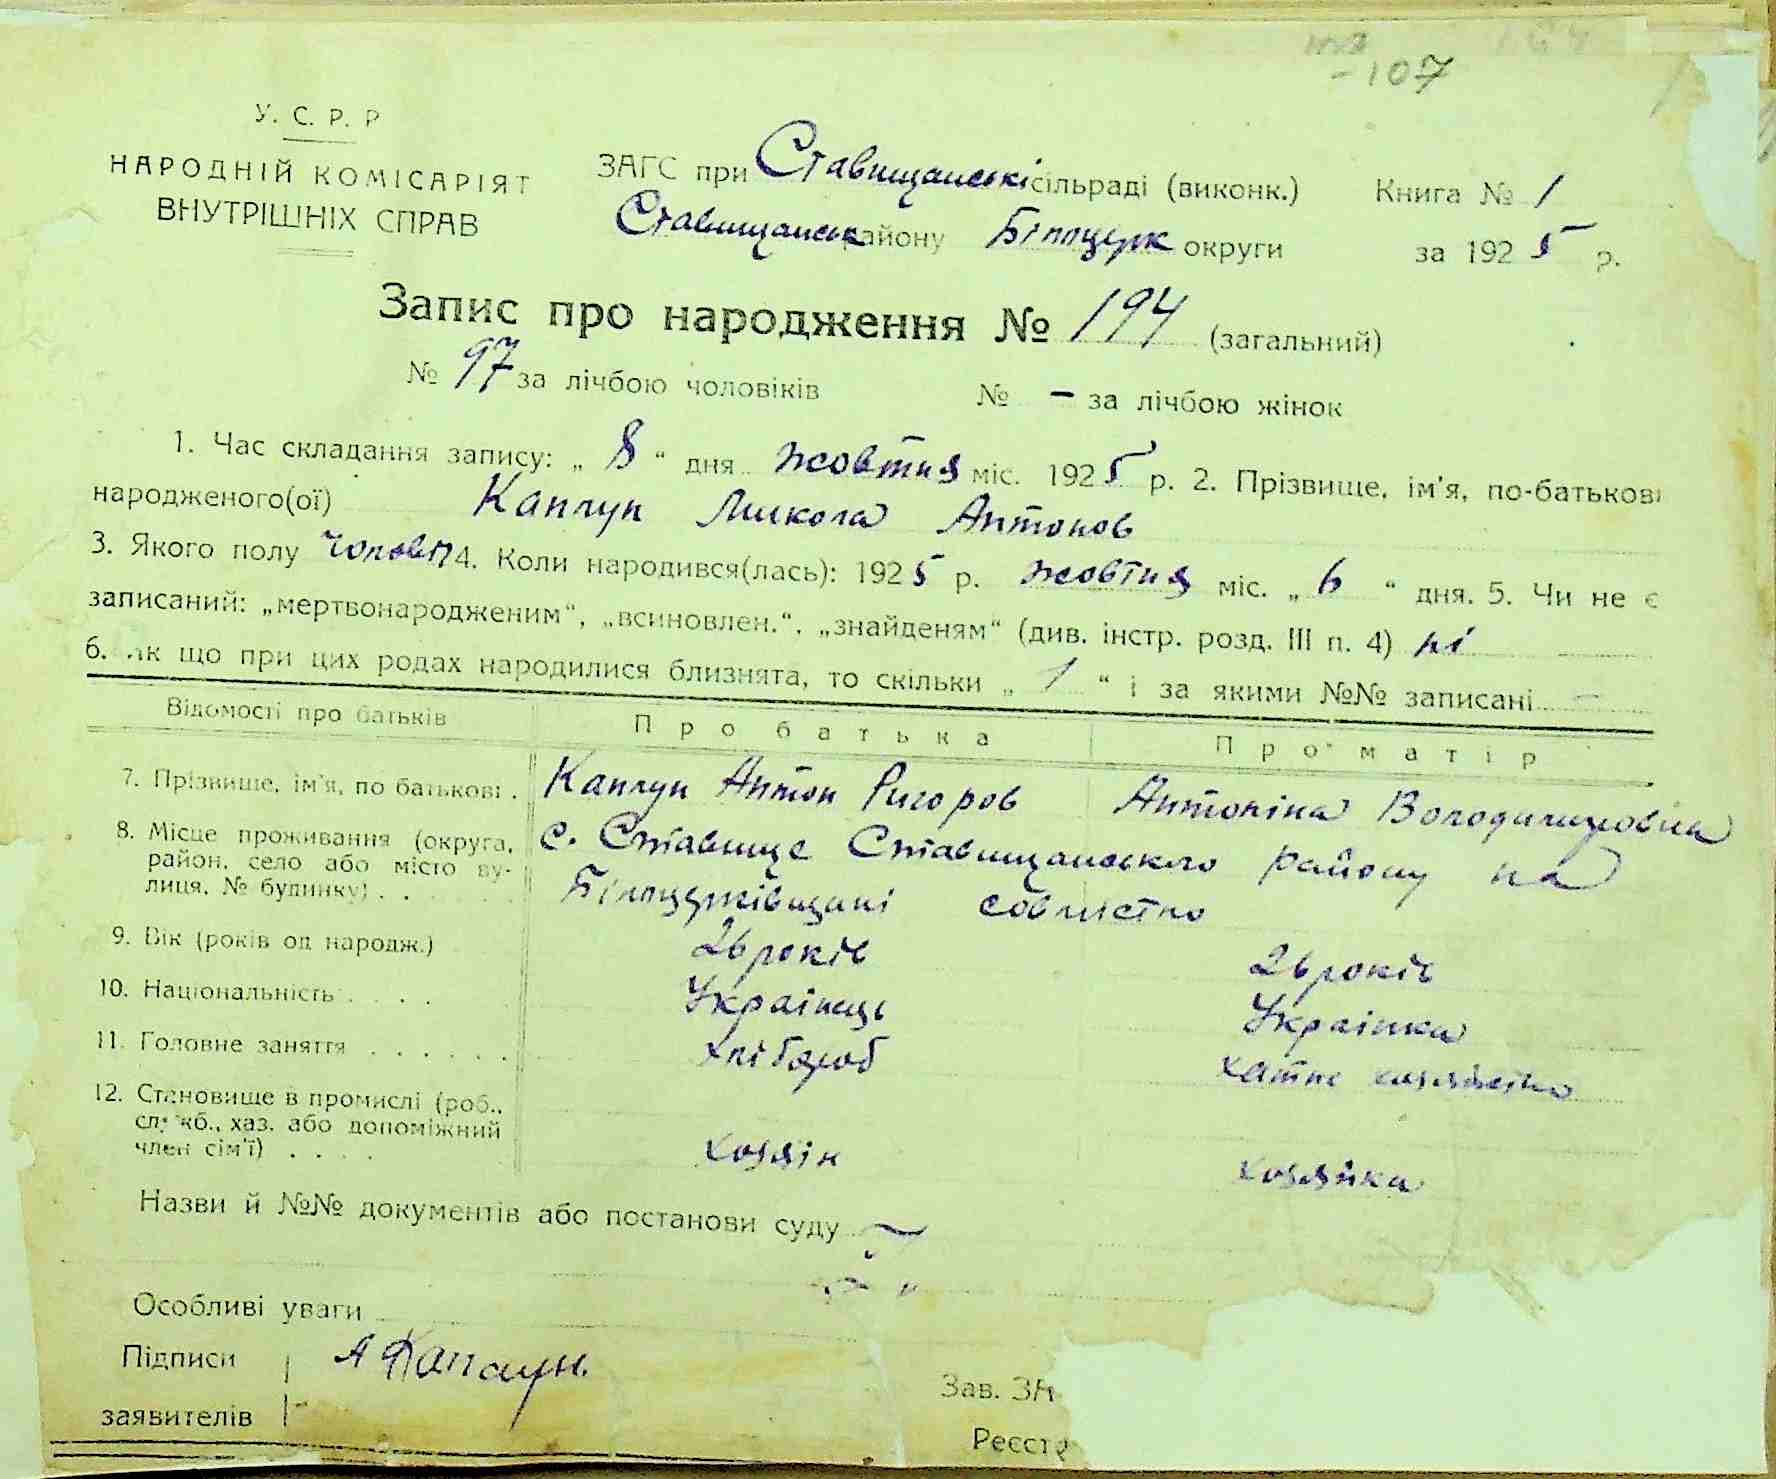 -107
У. С. Р. Р
НАРОДНІЙ КОМІСАРІЯТ
ВНУТРІШНІХ СПРАВ
ЗАГС при Ставищанські сільраді (виконк.) Книга № 1
Ставищанськ району Білоцерк округи за 1925 р.
Запис про народження № 194 (загальний)
№ 97 за лічбою чоловіків № – за лічбою жінок
1. Час складання запису: „ 8 “ дня жовтня міс. 1925 р. 2. Прізвище, ім'я, по-батькові
народженого(ої) Каплун Микола Антонов
3. Якого полу чолов 4. Коли народився(лась): 1925 р. жовтня міс. „ 6 “ дня. 5. Чи не є
записаний: „мертвонародженим“, „всиновлен.“, „знайденям“ (див. інстр. розд. III п. 4) ні
6. Як що при цих родах народилися близнята, то скільки „ 1 “ і за якими №№ записані –
Відомості про батьків Про батька Про матір
7. Прізвище, ім'я, по батькові . Каплун Антон Ригоров Антоніна Володимировна
8. Місце проживання (округа, с. Ставище Ставищанського району на
район, село або місто ву-
лиця, № будинку) . . Білоцерківщині совместно
9. Вік (років од народж.) 26 років 26 років
10. Національність . . . . Українець Українка
11. Головне заняття . . . . . . хлібороб хатне хозяйство
12. Становище в промислі (роб.,
служб., хаз. або допоміжний
член сім'ї) . . . . хозяін хозяйка
Назви й №№ документів або постанови суду
Особливі уваги
Підписи А Каплун.
заявителів
Зав. ЗА
Реєстр